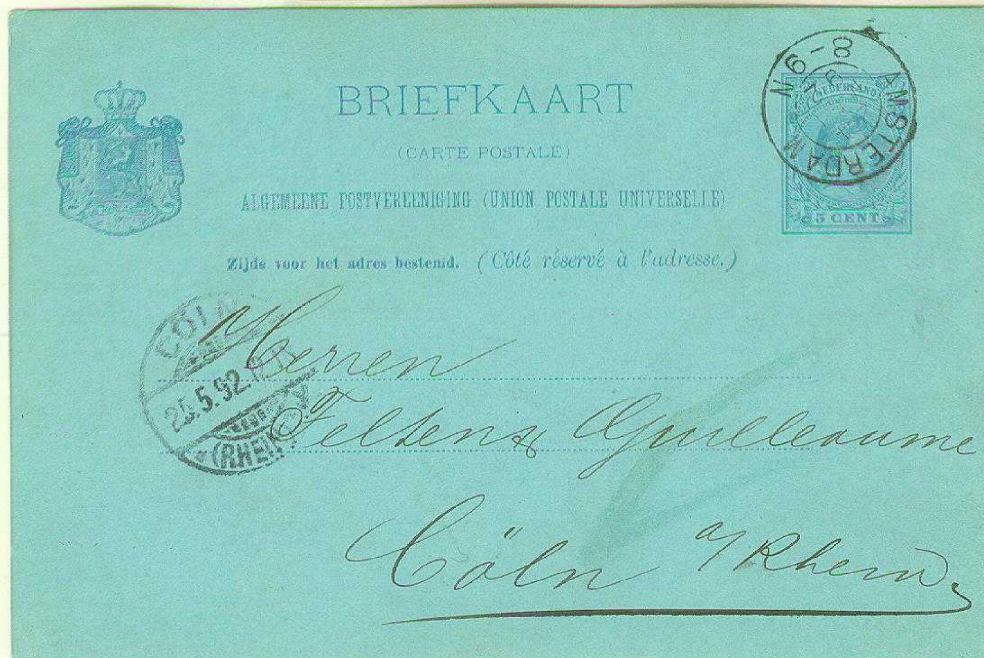 BRIEFKAART
(CARTE POSTALE)
ALGEMEENE POSTVEREENIGING (UNION POSTALE UNIVERSELLE)
Zijde voor het adres bestemd. (Côté réservé à l'adresse.)
NEDERLAND
5 CENT
AMSTERDAM
8-9N
CÖLN
25.5.92.
(RHEIN)
Herren
Felten & Guilleaume
Cöln a/Rhein